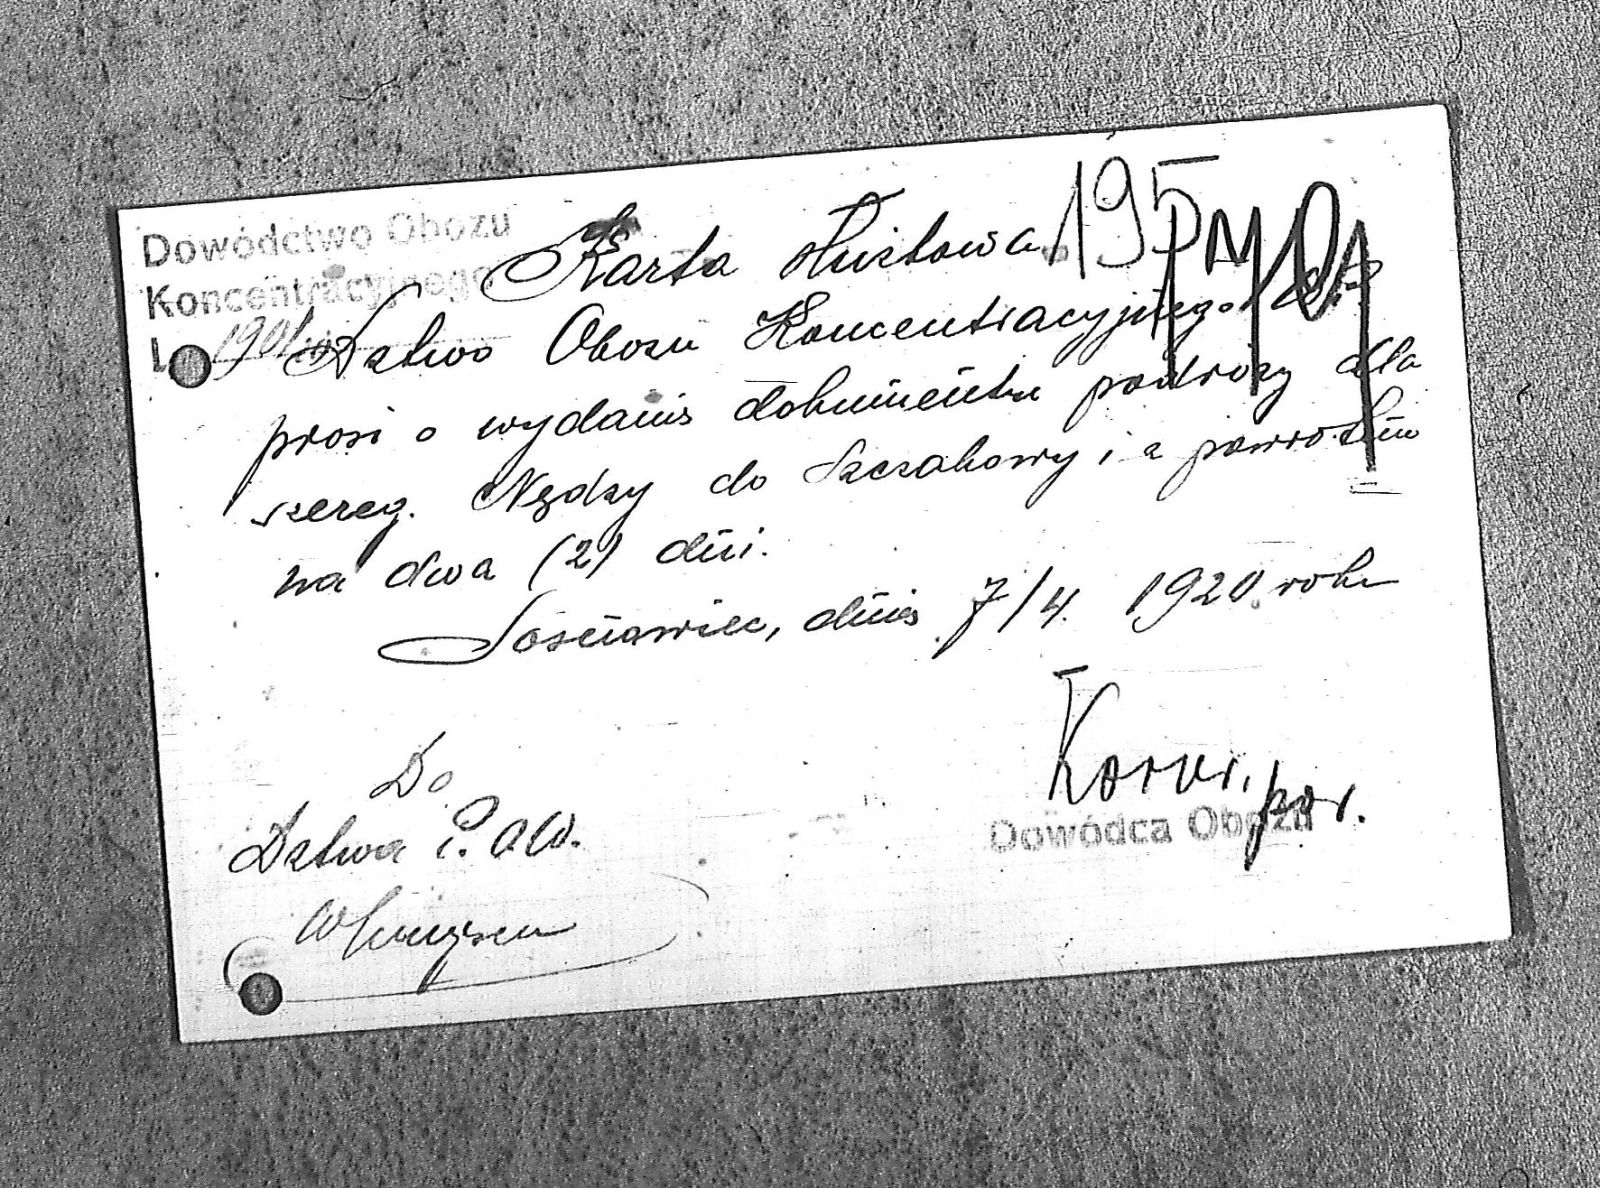 Dowództwo Obozu
Koncentracyjnego
L.
Karta służbowa 195
Dztwo Obozu Koncentracyjnego
prosi o wydanie dokumentu podróży dla
szereg. Nędzy do Szczakowy i z powrotem
na dwa (2) dni.
Sosnowiec, dnia 7/4. 1920 roku
por.
Dowódca Obozu
Do
Dztwa
W miejscu